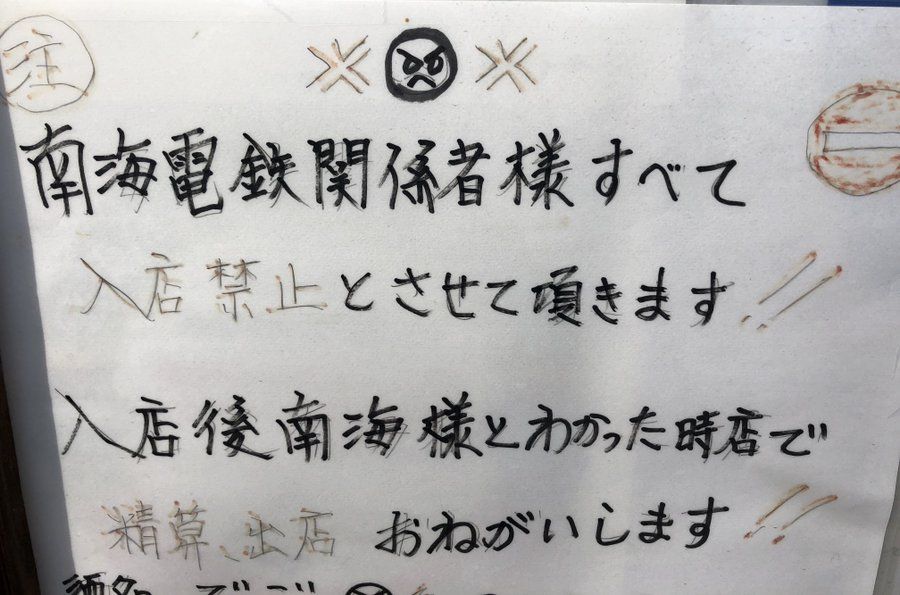 注
※ ※
南海電鉄関係者様すべて
入店禁止とさせて頂きます!!
入店後南海様とわかった時店で
精算、出店おねがいします!!